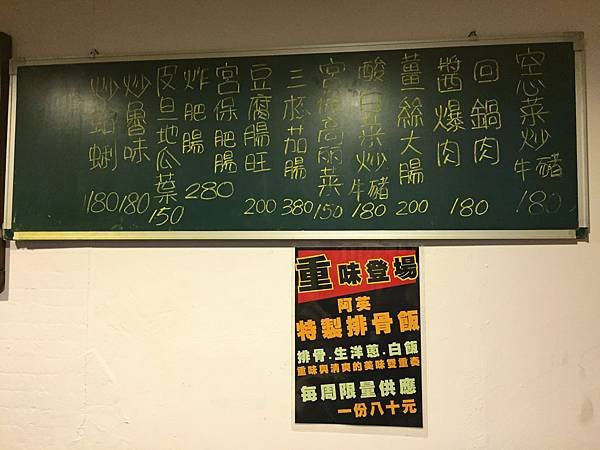 空心菜炒牛豬 180
回鍋肉
醬爆肉 180
薑絲大腸 200
酸白菜炒牛豬 180
宮保高丽菜 150
三杯茄腸 380
豆腐腸旺 200
宮保肥腸
炸肥腸 280
皮旦地瓜葉 150
炒魯味 180
炒蛤蜊 180
重味登場
阿英
特製排骨飯
排骨.生洋蔥.白飯
重味與清爽的美味雙重奏
每周限量供應
一份八十元